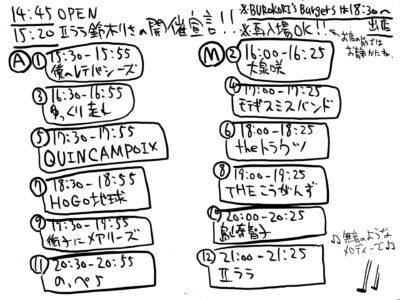 14:45 OPEN
15:20 IIララ鈴木りさの開催宣言!!
※BUROKKI's Burgersは18:30〜
出店
※再入場OK!!
お店の前では
お静かにね。
A
① 15:30-15:55
僕のレテパシーズ
③ 16:30-16:55
ゆっくり走れ
⑤ 17:30-17:55
QUINCAMPOIX
⑦ 18:30-18:55
HOGO地球
⑨ 19:30-19:55
街子にメアリーズ
⑪ 20:30-20:55
のっぺら
M
② 16:00-16:25
大泉咲
④ 17:00-17:25
モデギスミスバンド
⑥ 18:00-18:25
theトラウツ
⑧ 19:00-19:25
THEこうがんず
⑩ 20:00-20:25
島崎智子
⑫ 21:00-21:25
IIララ
♪無音のような
メロディーで♪